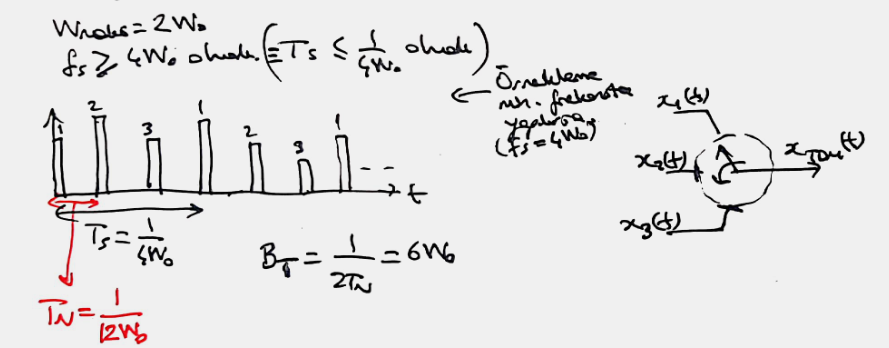 Wmaks = 2W₀
fs ≥ 4W₀ olmalı. (≡ Ts ≤ 1/4W₀ olmalı)
← Örnekleme
min. frekansta
yapılırsa
(fs = 4W₀)
1 2 3 1 2 3 1 - - -
t
Ts = 1/4W₀
TN = 1/12W₀
BT = 1/2TN = 6W₀
x₁(t)
x₂(t)
x₃(t)
xTDM(t)